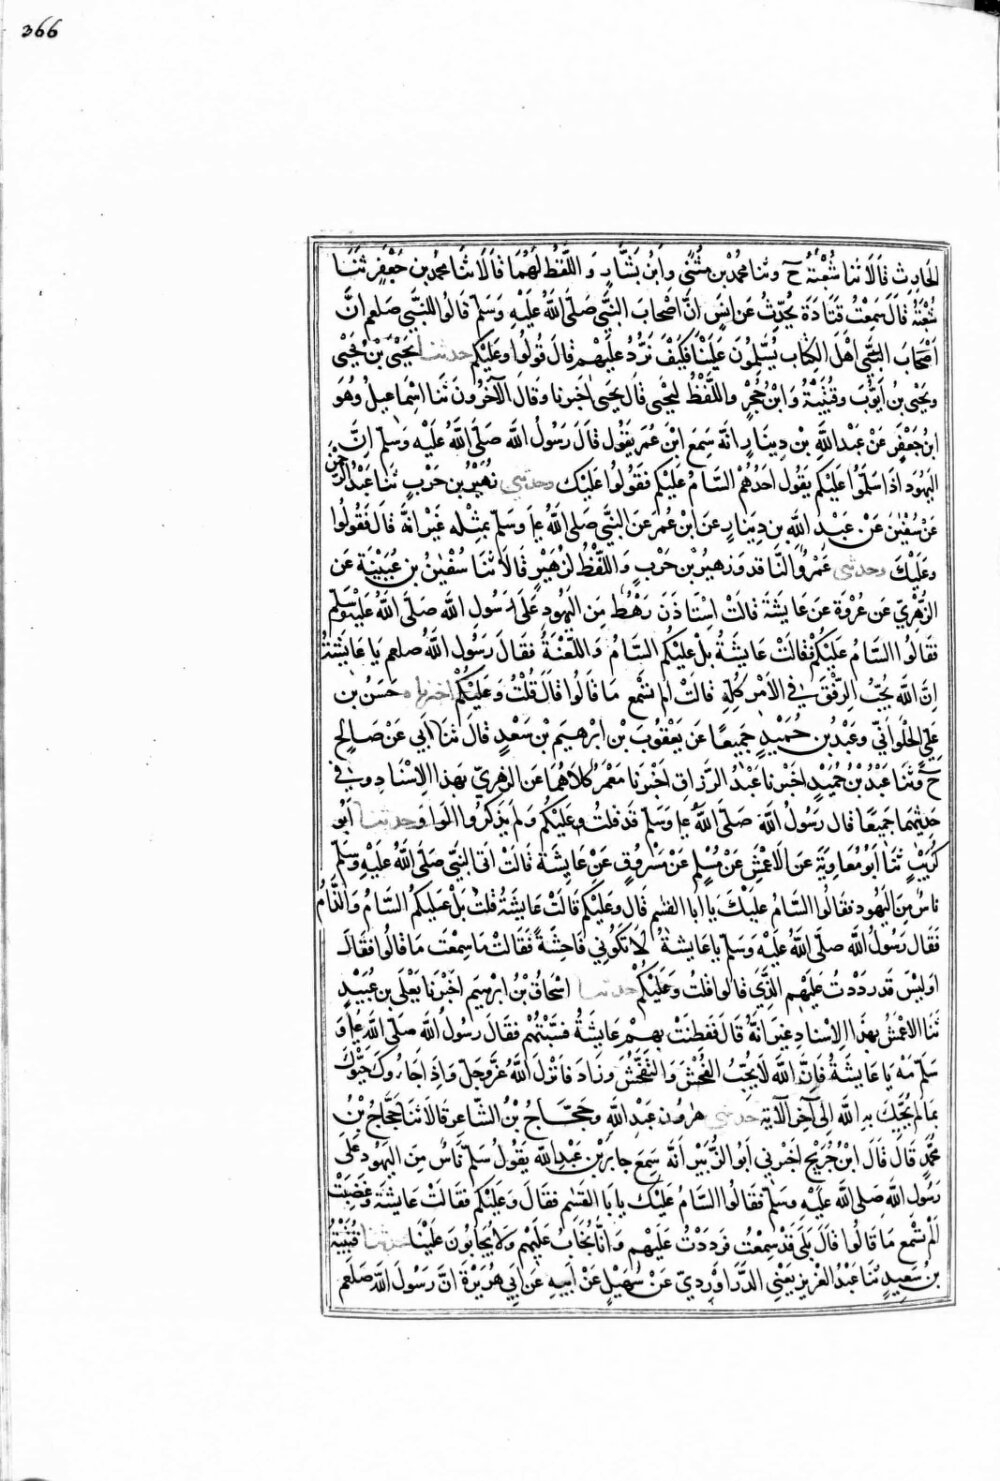 366
الحارث قالا ثنا شعبة ح وثنا محمد بن مثنى وابن بشار واللفظ لهما قالا ثنا محمد بن جعفر ثنا
شعبة قال سمعت قتادة يحدث عن انس ان اصحاب النبي صلى الله عليه وسلم قالوا للنبي صلعم ان
اصحاب النبي اهل الكتاب يسلمون علينا فكيف نرد عليهم قال قولوا وعليكم حدثنا يحيى بن يحيى
ويحيى بن ايوب وقتيبة وابن حجر واللفظ ليحيى قال يحيى اخبرنا وقال الآخرون ثنا اسماعيل وهو
ابن جعفر عن عبد الله بن دينار انه سمع ابن عمر يقول قال رسول الله صلى الله عليه وسلم ان
اليهود اذا سلموا عليكم يقول احدهم السام عليكم فقولوا عليك وحدثني زهير بن حرب ثنا عبد الرحمن
عن سفين عن عبد الله بن دينار عن ابن عمر عن النبي صلى الله ع وسلم بمثله غير انه قال فقولوا
وعليك وحدثني عمرو الناقد وزهير بن حرب واللفظ لزهير قالا ثنا سفين بن عيينة عن
الزهري عن عروة عن عايشة قالت استاذن رهط من اليهود على رسول الله صلى الله عليه وسلم
فقالوا السام عليكم فقالت عايشة بل عليكم السام واللعنة فقال رسول الله صلعم يا عايشة
ان الله يحب الرفق في الامر كله قالت الم تسمع ما قالوا قال قلت وعليكم اخبرناه حسن بن
علي الحلواني وعبد بن حميد جميعا عن يعقوب بن ابرهيم بن سعد قال ثنا ابي عن صالح
ح وثنا عبد بن حميد اخبرنا عبد الرزاق اخبرنا معمر كلاهما عن الزهري بهذا الاسناد وفي
حديثهما جميعا قال رسول الله صلى الله ع وسلم قد قلت وعليكم ولم يذكروا الواو وحدثنا ابو
كريب ثنا ابو معاوية عن الاعمش عن مسلم عن مسروق عن عايشة قالت اتى النبي صلى الله عليه وسلم
ناس من اليهود فقالوا السام عليك يا ابا القسم قال وعليكم قالت عايشة قلت بل عليكم السام والذام
فقال رسول الله صلى الله عليه وسلم يا عايشة لا تكوني فاحشة فقالت ما سمعت ما قالوا فقال
اوليس قد رددت عليهم الذي قالوا قلت وعليكم حدثنا اسحاق بن ابرهيم اخبرنا يعلى بن عبيد
ثنا الاعمش بهذا الاسناد غير انه قال ففطنت بهم عايشة فسبتهم فقال رسول الله صلى الله ع و
سلم مه يا عايشة فان الله لا يحب الفحش والتفحش وزاد فانزل الله عز وجل واذا جاءوك حيوك
بما لم يحيك به الله الى آخر الآية حدثني هرون بن عبد الله وحجاج بن الشاعر قالا ثنا حجاج بن
محمد قال قال ابن جريج اخبرني ابو الزبير انه سمع جابر بن عبد الله يقول سلم ناس من اليهود على
رسول الله صلى الله عليه وسلم فقالوا السام عليك يا با القسم فقال وعليكم فقالت عايشة وغضبت
الم تسمع ما قالوا قال بلى قد سمعت فرددت عليهم وانا نجاب عليهم ولا يجابون علينا حدثنا قتيبة
بن سعيد ثنا عبد العزيز يعني الدراوردي عن سهيل عن ابيه عن ابي هريرة ان رسول الله صلعم